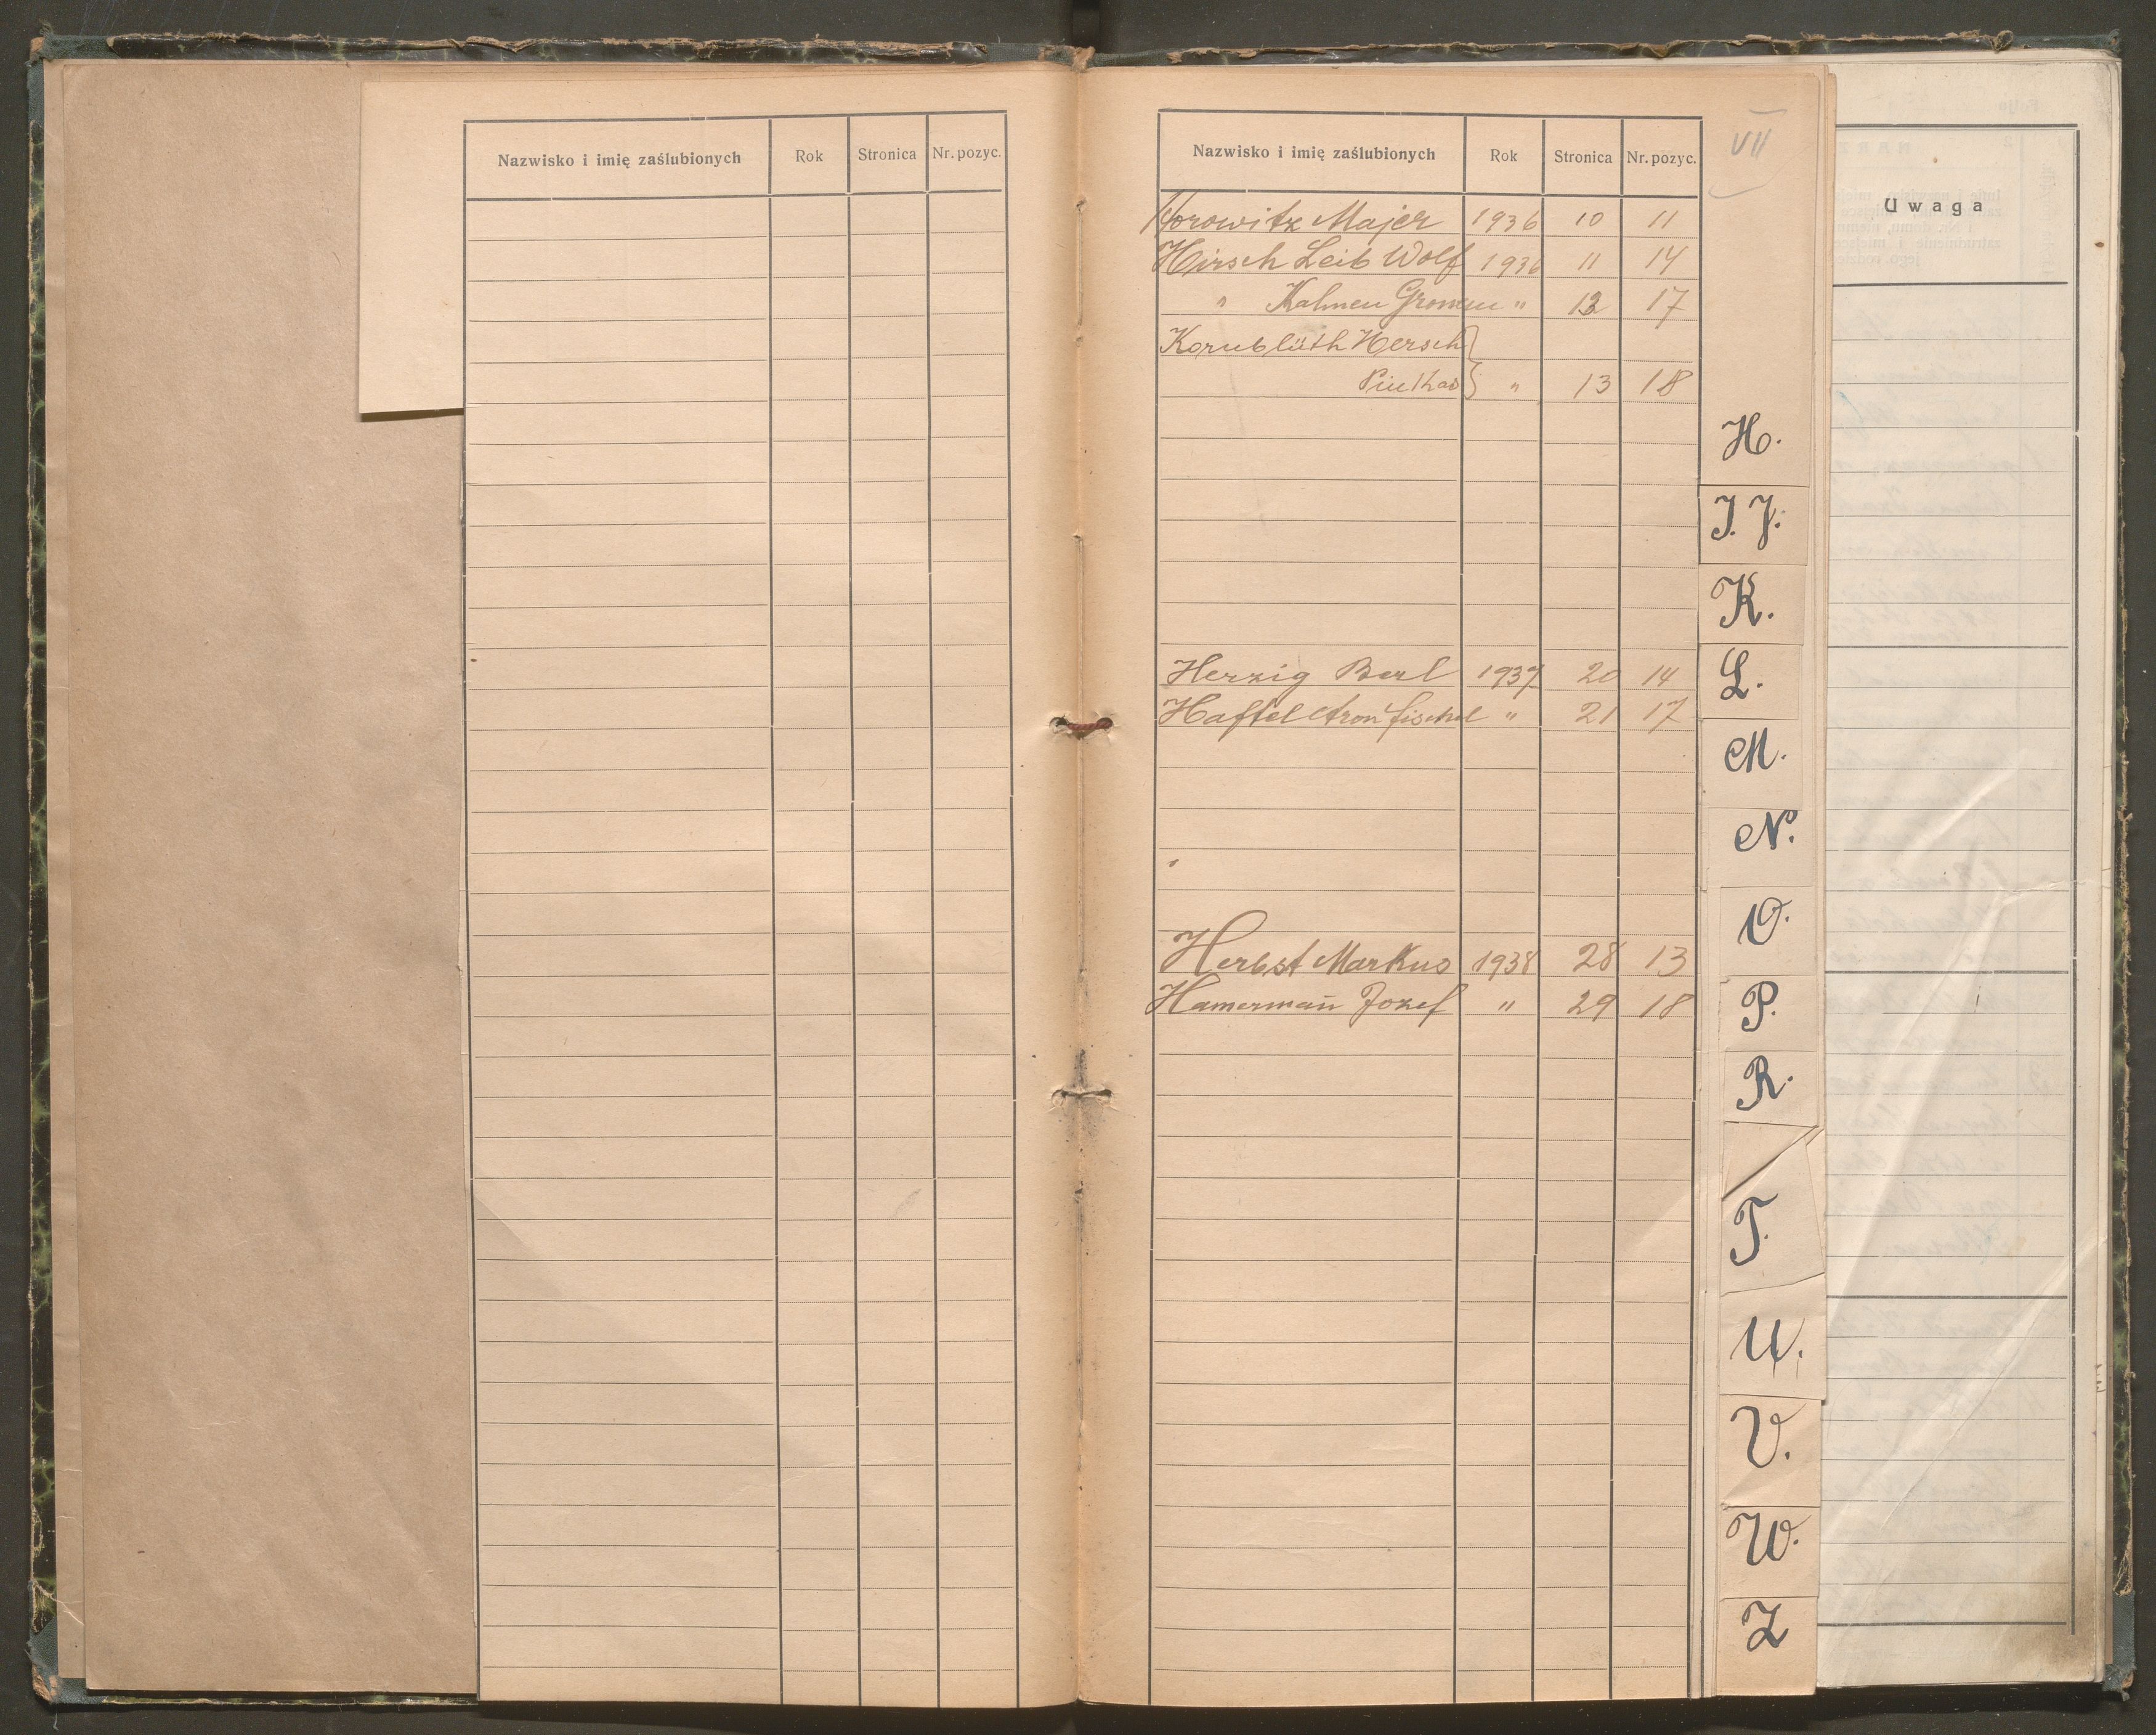 Nazwisko i imię zaślubionych Rok Stronica Nr. pozyc.
Nazwisko i imię zaślubionych Rok Stronica Nr. pozyc.
VII
Horowitz Majer 1936 10 11
Hirsch Leib Wolf 1936 11 14
" Kalmen " 12 17
Kornblüth Hersch
Pinkas " 13 18
Herzig Berl 1937 20 14
Haftel Aron Fischel " 21 17
Herbst Markus 1938 28 13
Hamerman Jozef " 29 18
H.
I. J.
K.
L.
M.
N.
O.
P.
R.
T.
U.
V.
W.
Z
Uwaga